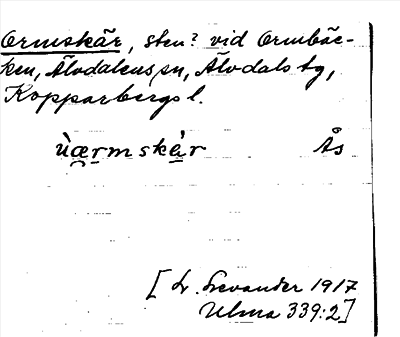 Ormskär, sten? vid Ormbäc-
ken, Älvdalens sn, Älvdals tg,
Kopparbergs l.
ùærmskár Ås
[L. Levander 1917
Ulma 339:2]